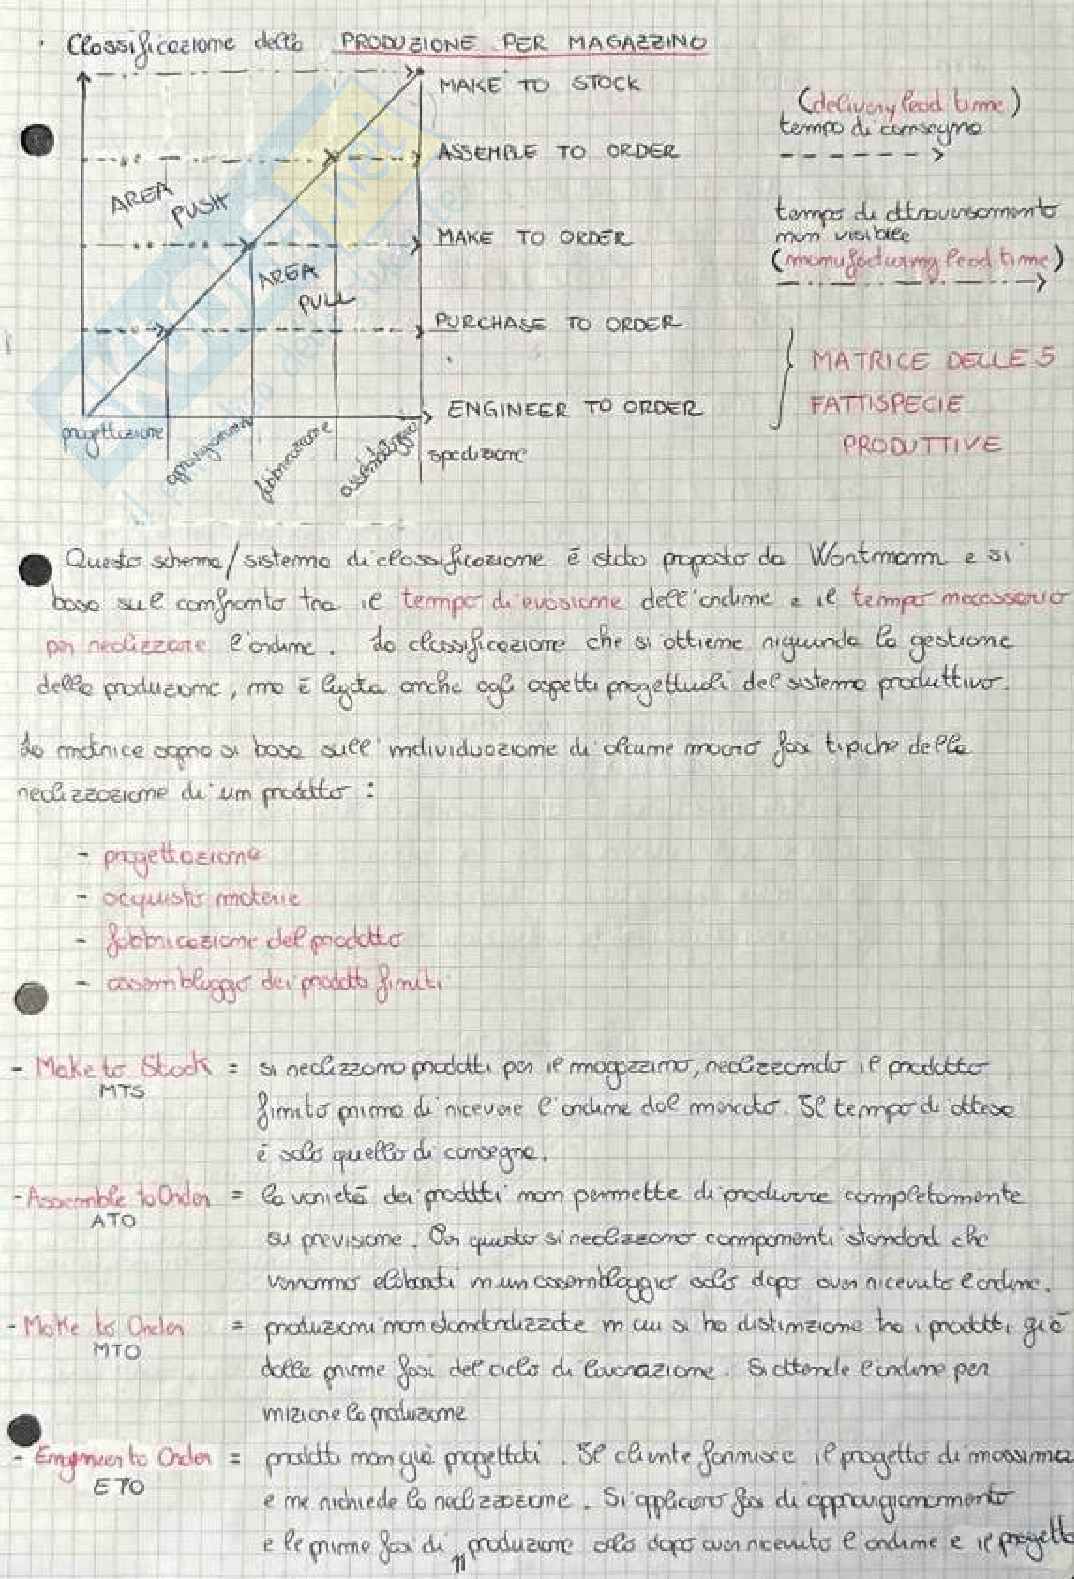 · Classificazione della PRODUZIONE PER MAGAZZINO
MAKE TO STOCK
(delivery lead time)
tempo di consegna
ASSEMBLE TO ORDER
AREA PUSH
tempo di attraversamento
non visibile
(manufacturing lead time)
MAKE TO ORDER
AREA PULL
PURCHASE TO ORDER
MATRICE DELLE 5
FATTISPECIE
PRODUTTIVE
ENGINEER TO ORDER
progettazione
approvvigionamento
fabbricazione
assemblaggio
spedizione
Questo schema/sistema di classificazione è stato proposto da Wortmann e si
basa sul confronto tra il tempo di evasione dell'ordine e il tempo necessario
per realizzare l'ordine. La classificazione che si ottiene riguarda la gestione
della produzione, ma è legata anche agli aspetti progettuali del sistema produttivo.
La matrice sopra si basa sull'individuazione di alcune macro fasi tipiche della
realizzazione di un prodotto :
- progettazione
- acquisto materie
- fabbricazione del prodotto
- assemblaggio dei prodotti finiti
- Make to Stock = si realizzano prodotti per il magazzino, realizzando il prodotto
MTS
finito prima di ricevere l'ordine dal mercato. Il tempo di attesa
è solo quello di consegna.
- Assemble to Order = la varietà dei prodotti non permette di produrre completamente
ATO
su previsione. Per questo si realizzano componenti standard che
verranno elaborati in un assemblaggio solo dopo aver ricevuto l'ordine.
- Make to Order = produzioni non standardizzate in cui si ha distinzione tra i prodotti già
MTO
dalle prime fasi del ciclo di lavorazione. Si attende l'ordine per
iniziare la produzione
- Engineer to Order = prodotti non già progettati. Il cliente fornisce il progetto di massima
ETO
e ne richiede la realizzazione. Si applicano fasi di approvvigionamento
e le prime fasi di produzione solo dopo aver ricevuto l'ordine e il progetto